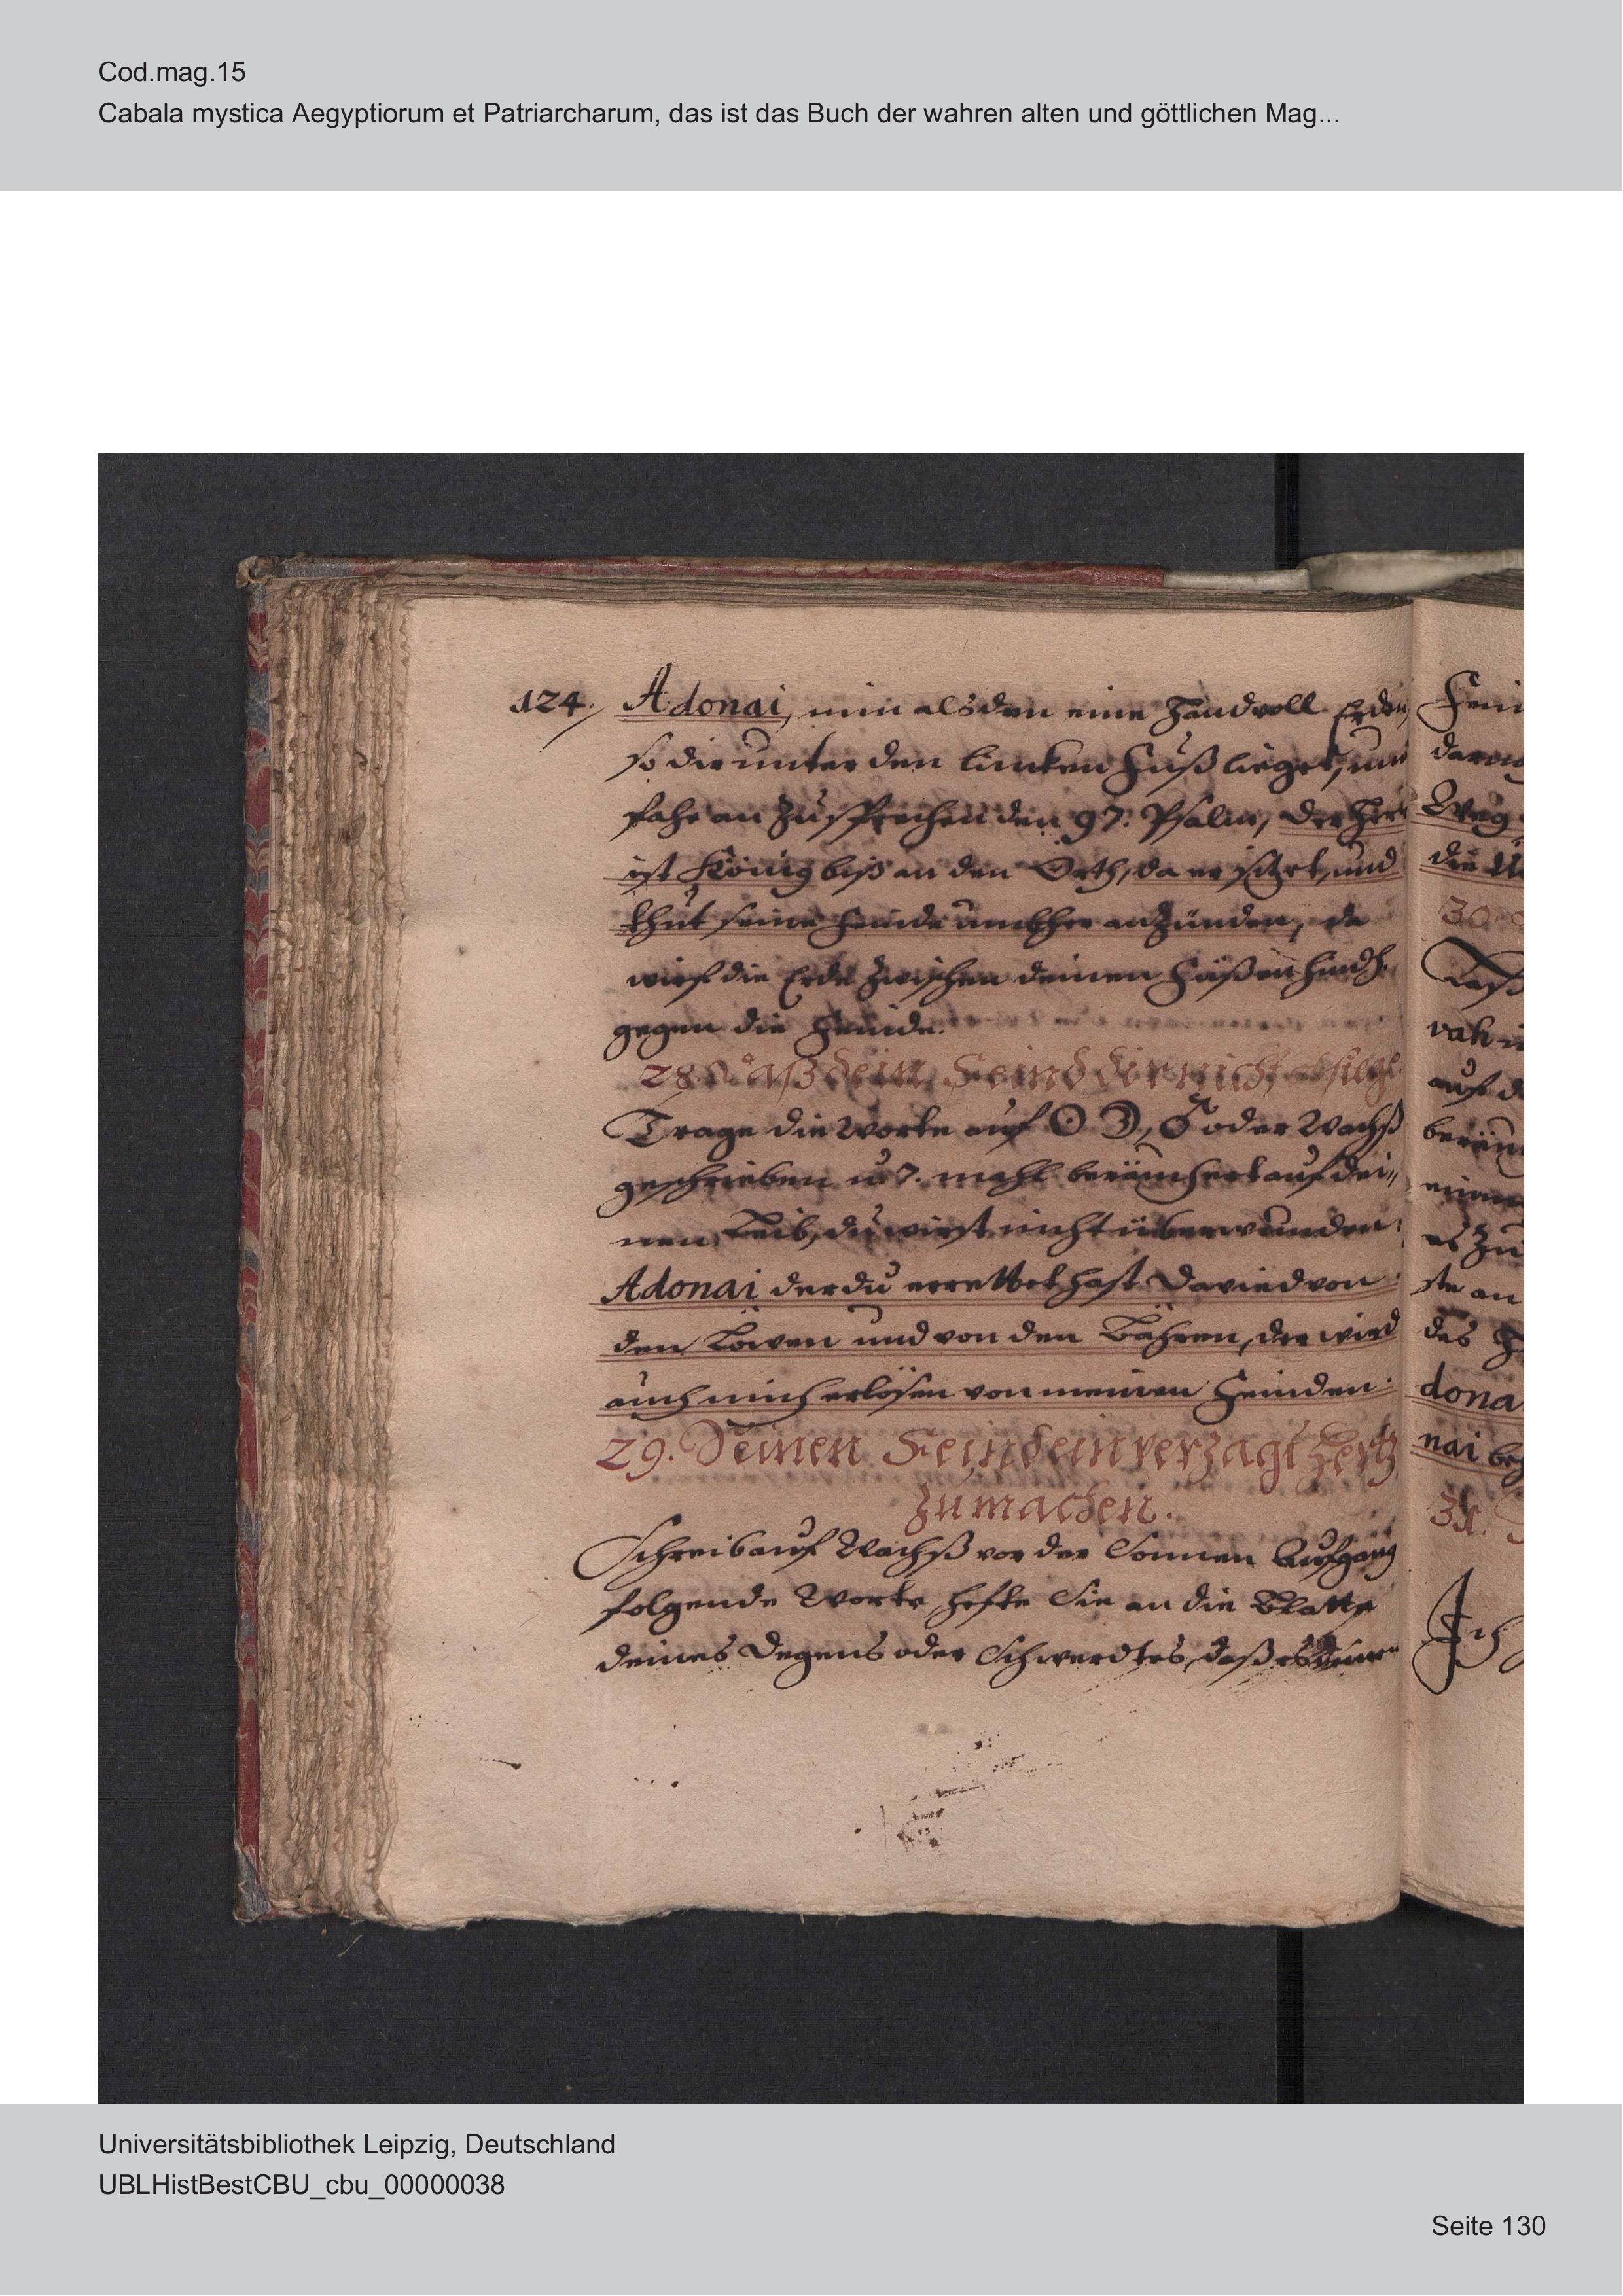 Cod.mag.15
Cabala mystica Aegyptiorum et Patriarcharum, das ist das Buch der wahren alten und göttlichen Mag...
124. Adonai, nim alsden eine Handvoll Erden
so dir unter den lincken Fuß lieget, und
fahe an zu sprechen den 97. Psalm, der Herr
ist König biß an den Orth, da er sitzet, und
thut seine Feinde umbher anzünden, da
wirf die Erde zwischen deinen Füßen
gegen die Feinde.
28. Daß dein Feind dir nicht
Trage die Worte auf ☉ ☽, ♂ oder Wachß
geschrieben u 7. mahl beräuchert auf dei„
nen Leib, du wirst nicht überwunden
Adonai der du errettet hast David von
den Löwen und von den Bähren, der wird
auch mich erlösen von meinen Feinden.
29. Deinen Feind ein verzagt Hertz
zu machen.
Schreib auf Wachß vor der Sonnen Aufgang
folgende Worte, hefte Sie an die Blatte
deines Degens oder Schwerdtes, daß es
die
30.
vak
auf
es zu
ste an
des
dona
nai
31.
Ich
Universitätsbibliothek Leipzig, Deutschland
UBLHistBestCBU_cbu_00000038
Seite 130